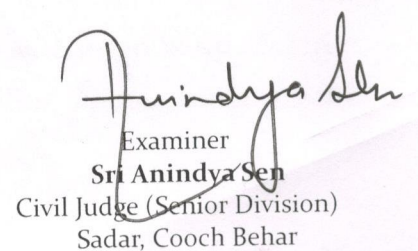 Anindya Sen
Examiner
Sri Anindya Sen
Civil Judge (Senior Division)
Sadar, Cooch Behar